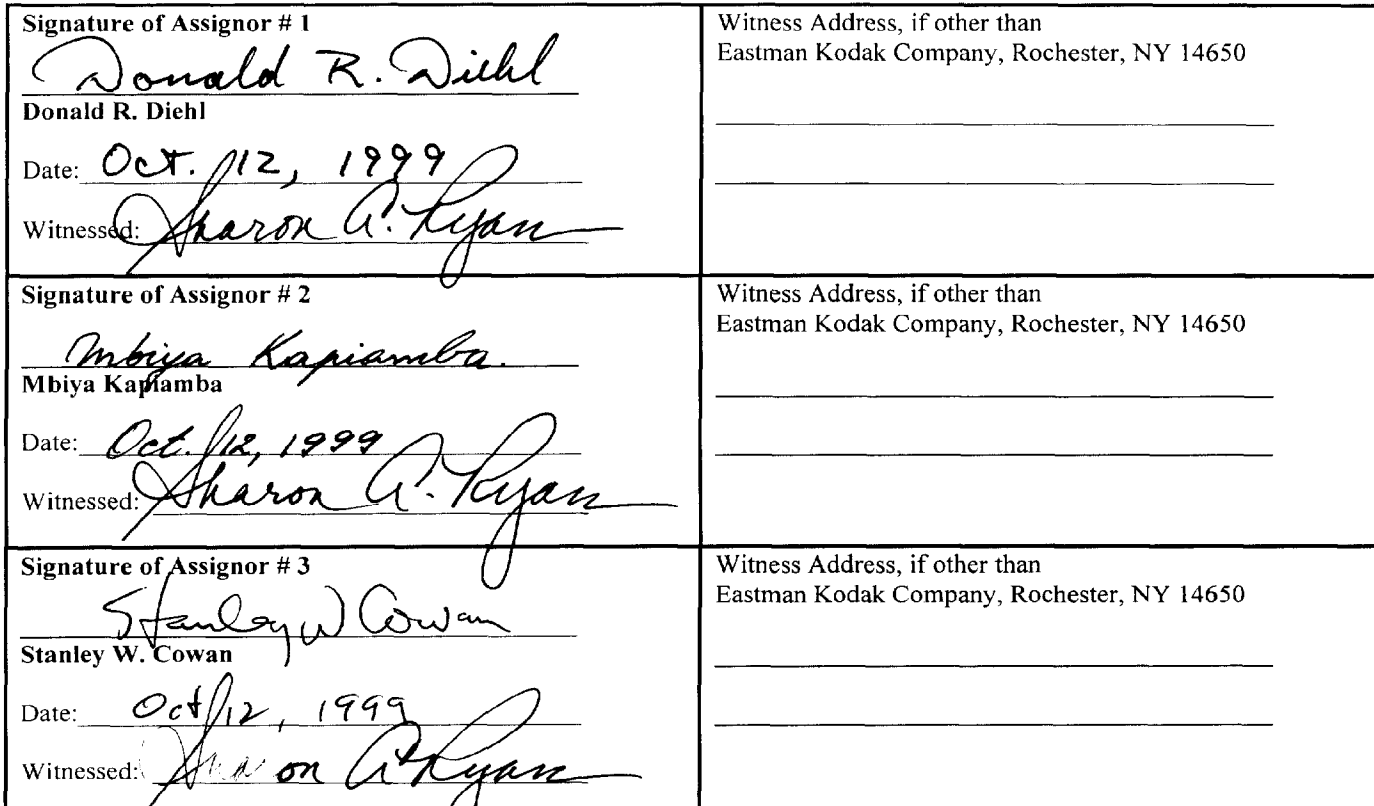 Signature of Assignor # 1
Donald R. Diehl
Donald R. Diehl
Date: Oct. 12, 1999
Witnessed: Sharon A. Ryan
Witness Address, if other than
Eastman Kodak Company, Rochester, NY 14650
Signature of Assignor # 2
Mbiya Kapiamba.
Mbiya Kapiamba
Date: Oct. 12, 1999
Witnessed: Sharon A. Ryan
Witness Address, if other than
Eastman Kodak Company, Rochester, NY 14650
Signature of Assignor # 3
Stanley W Cowan
Stanley W. Cowan
Date: Oct 12, 1999
Witnessed: Sharon A Ryan
Witness Address, if other than
Eastman Kodak Company, Rochester, NY 14650